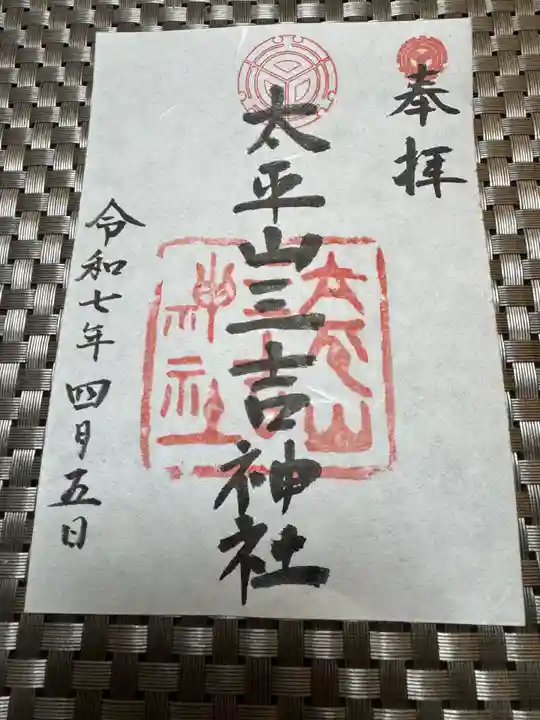 奉拝
太平山三吉神社
令和七年四月五日
太平山
三吉
神社